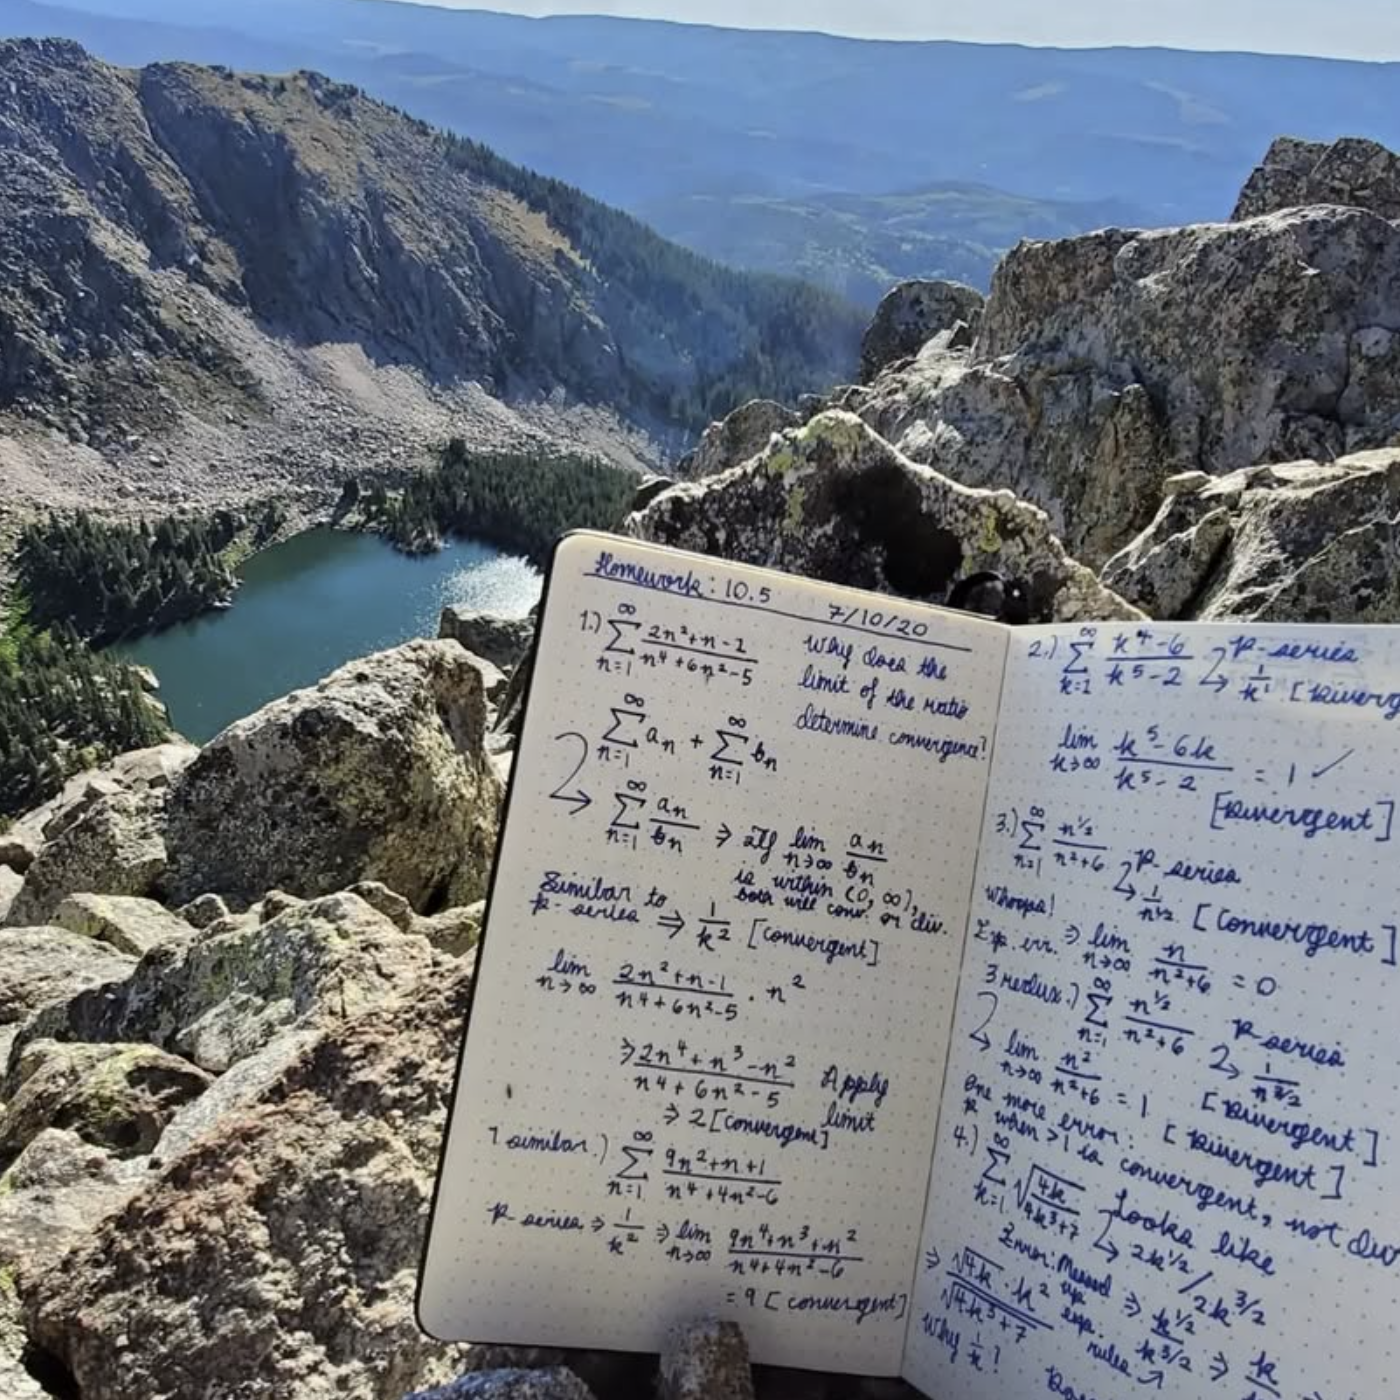 Homework: 10.5
7/10/20
1.) ∞ Σ n=1 2n²+n-1 / n⁴+6n²-5
Why does the
limit of the ratio
determine convergence?
∞ Σ n=1 aₙ + ∞ Σ n=1 bₙ
∞ Σ n=1 aₙ/bₙ ⇒ If lim n→∞ aₙ/bₙ
is within (0, ∞),
both will conv. or div.
Similar to
p-series ⇒ 1/k² [convergent]
lim n→∞ 2n²+n-1 / n⁴+6n²-5 · n²
⇒ 2n⁴+n³-n² / n⁴+6n²-5 Apply
limit
⇒ 2 [convergent]
1 similar.) ∞ Σ n=1 9n²+n+1 / n⁴+4n²-6
p-series ⇒ 1/k² ⇒ lim n→∞ 9n⁴+n³+n² / n⁴+4n²-6
= 9 [convergent]
2.) ∞ Σ k=2 k⁴-6 / k⁵-2 p-series
1/k¹
lim k→∞ k⁵-6k / k⁵-2 = 1 ✓
[Divergent]
3.) ∞ Σ n=1 n^1/2 / n²+6 p-series
1/n^1/2 [Convergent]
whoops!
Exp. err. ⇒ lim n→∞ n / n²+6 = 0
3 redux.) ∞ Σ n=1 n^1/2 / n²+6 p-series
1/n^3/2
lim n→∞ n² / n²+6 = 1 [Divergent]
[Divergent]
One more error:
p when >1 is convergent, not
4.) ∞ Σ k=1 √4k / 4k³+7 Looks like
2k^1/2 / 2k^3/2
Error: Messed up
exp. rules
⇒ √4k · k² / √4k³+7 ⇒ k^1/2 / k^3/2 ⇒
Why 1/k?